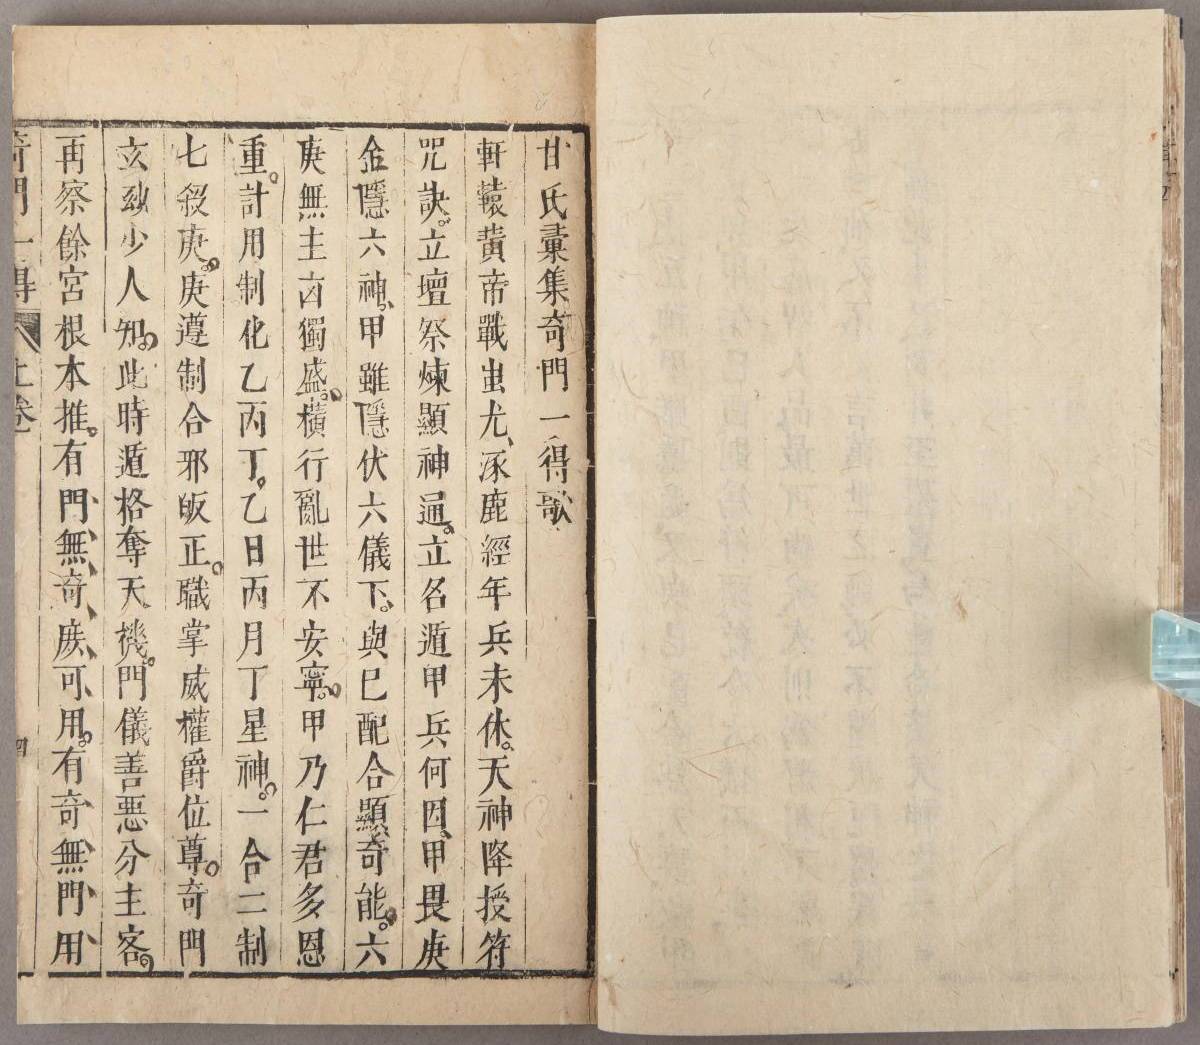 甘氏彙集奇門一得歌
軒轅黃帝戰蚩尤、涿鹿經年兵未休。天神降授符
咒訣。立壇祭煉顯神通。立名遁甲兵何因、甲畏庚
金隱六神。甲雖隱伏六儀下。與巳配合顯奇能。六
庚無主凶獨盛。橫行亂世不安寧。甲乃仁君多恩
重。計用制化乙丙丁。乙日丙月丁星神。一合二制
七殺庚。庚遵制合邪皈正。職掌威權爵位尊。奇門
玄玅少人知。此時遁格奪天機。門儀善惡分主客。
再察餘宮根本推。有門、無、奇、庶、可、用。有奇、無、門、用、
奇門一得 上卷 四